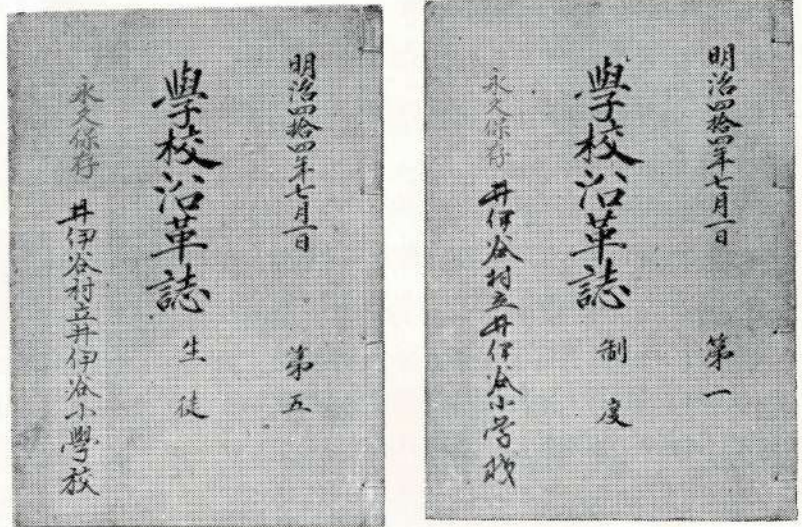 明治四拾四年七月一日
第一
學校沿革誌 制度
永久保存 井伊谷村立井伊谷小学校
明治四拾四年七月一日
第五
學校沿革誌 生徒
永久保存 井伊谷村立井伊谷小學校